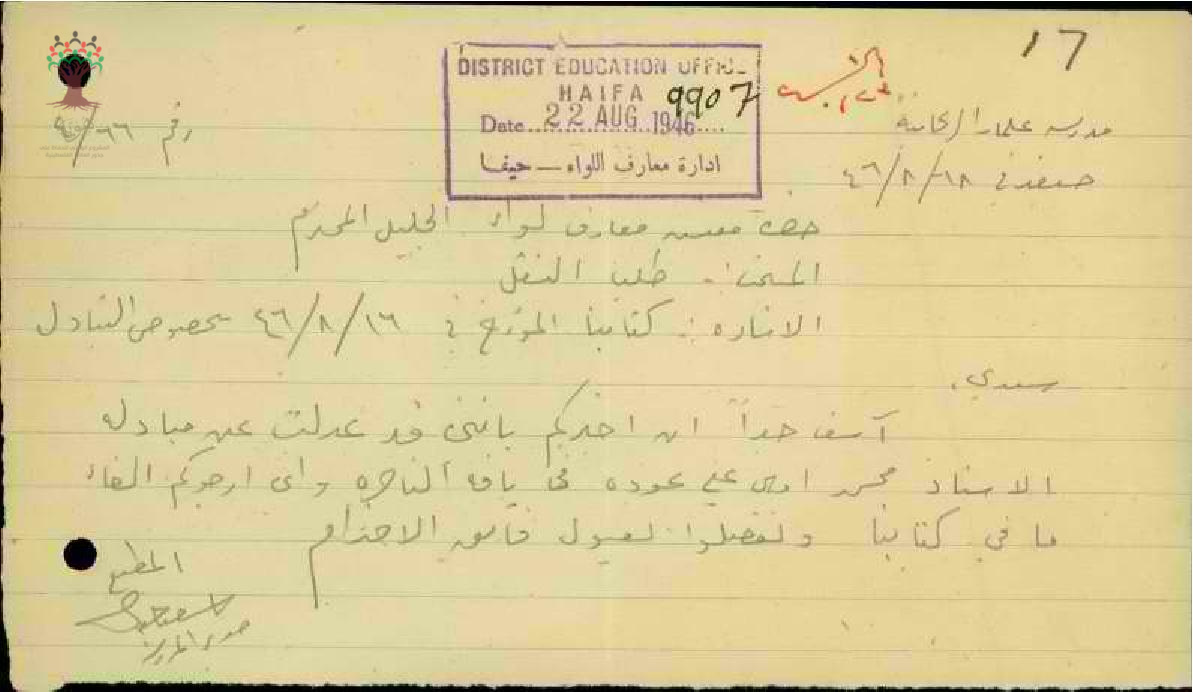 17
DISTRICT EDUCATION OFFICE
HAIFA
9907
Date 22 AUG 1946
ادارة معارف اللواء — حيفا
رقم ٦٦/٩
مدرسة علما الريحانية
صفد في ١٨/٨/٤٦
حضرة مفتش معارف لواء الجليل المحترم
المبحث: طلب النقل
الاشاره: كتابنا المؤرخ في ١٦/٨/٤٦ بخصوص التبادل
سيدي،
آسف جداً ان اخبركم بانني قد عدلت عن مبادلة
الاستاذ محمد علي عوده في يافة الناصره واني ارجوكم الغاء
ما في كتابنا وتفضلوا بقبول فائق الاحترام
المطيع
مدير المدرسة